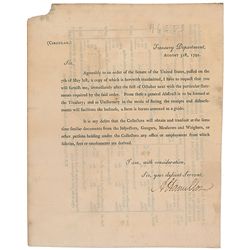 (CIRCULAR.)
Treasury Department,
AUGUST 31st, 1792.
Sir,
Agreeably to an order of the Senate of the United States, passed on the
7th of May last, a copy of which is herewith transmitted, I have to request that you
will furnish me, immediately after the first of October next with the particular statement
required by the said order. From these a general abstract is to be formed at the
Treasury; and as Uniformity in the mode of stating the receipts and disbursements
will facilitate the business, a form is hereto annexed as a guide.
It is my desire that the Collectors will obtain and transmit at the same
time similar documents from the Inspectors, Gaugers, Measurers and Weighers, or
other persons holding under the Collectors any office or employment from which
salaries, fees or emoluments are derived.
I am, with consideration,
Sir, your obedient Servant,
A Hamilton